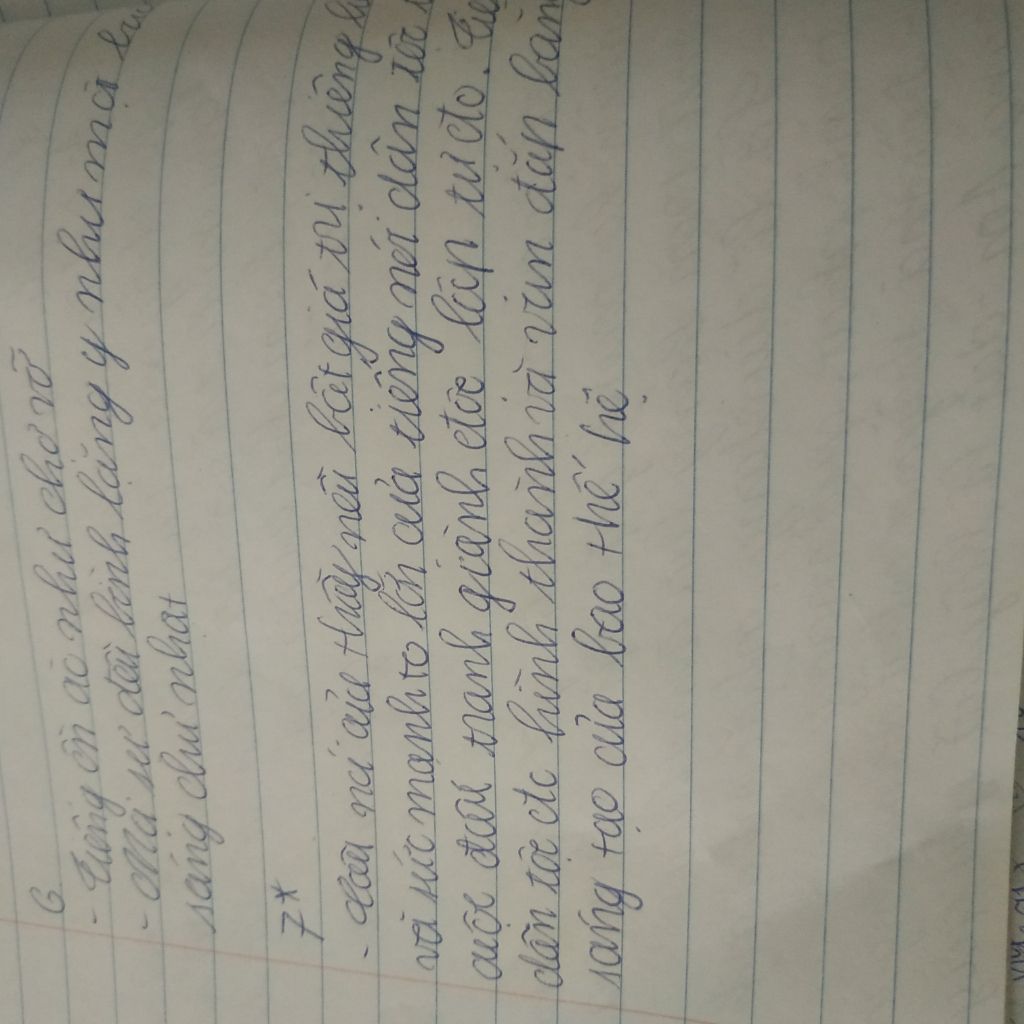 6
- Tiếng ồn ào như chợ vỡ
- Mọi sự đều bình lặng y như mọi
sáng chủ nhật
7*
- Câu nói của thầy nêu bật giá trị thiêng
và sức mạnh to lớn của tiếng nói dân tộc
cuộc đấu tranh giành độc lập tự do. Tiế
dân tộc đc hình thành và vun đắp bằng
sáng tạo của bao thế hệ.